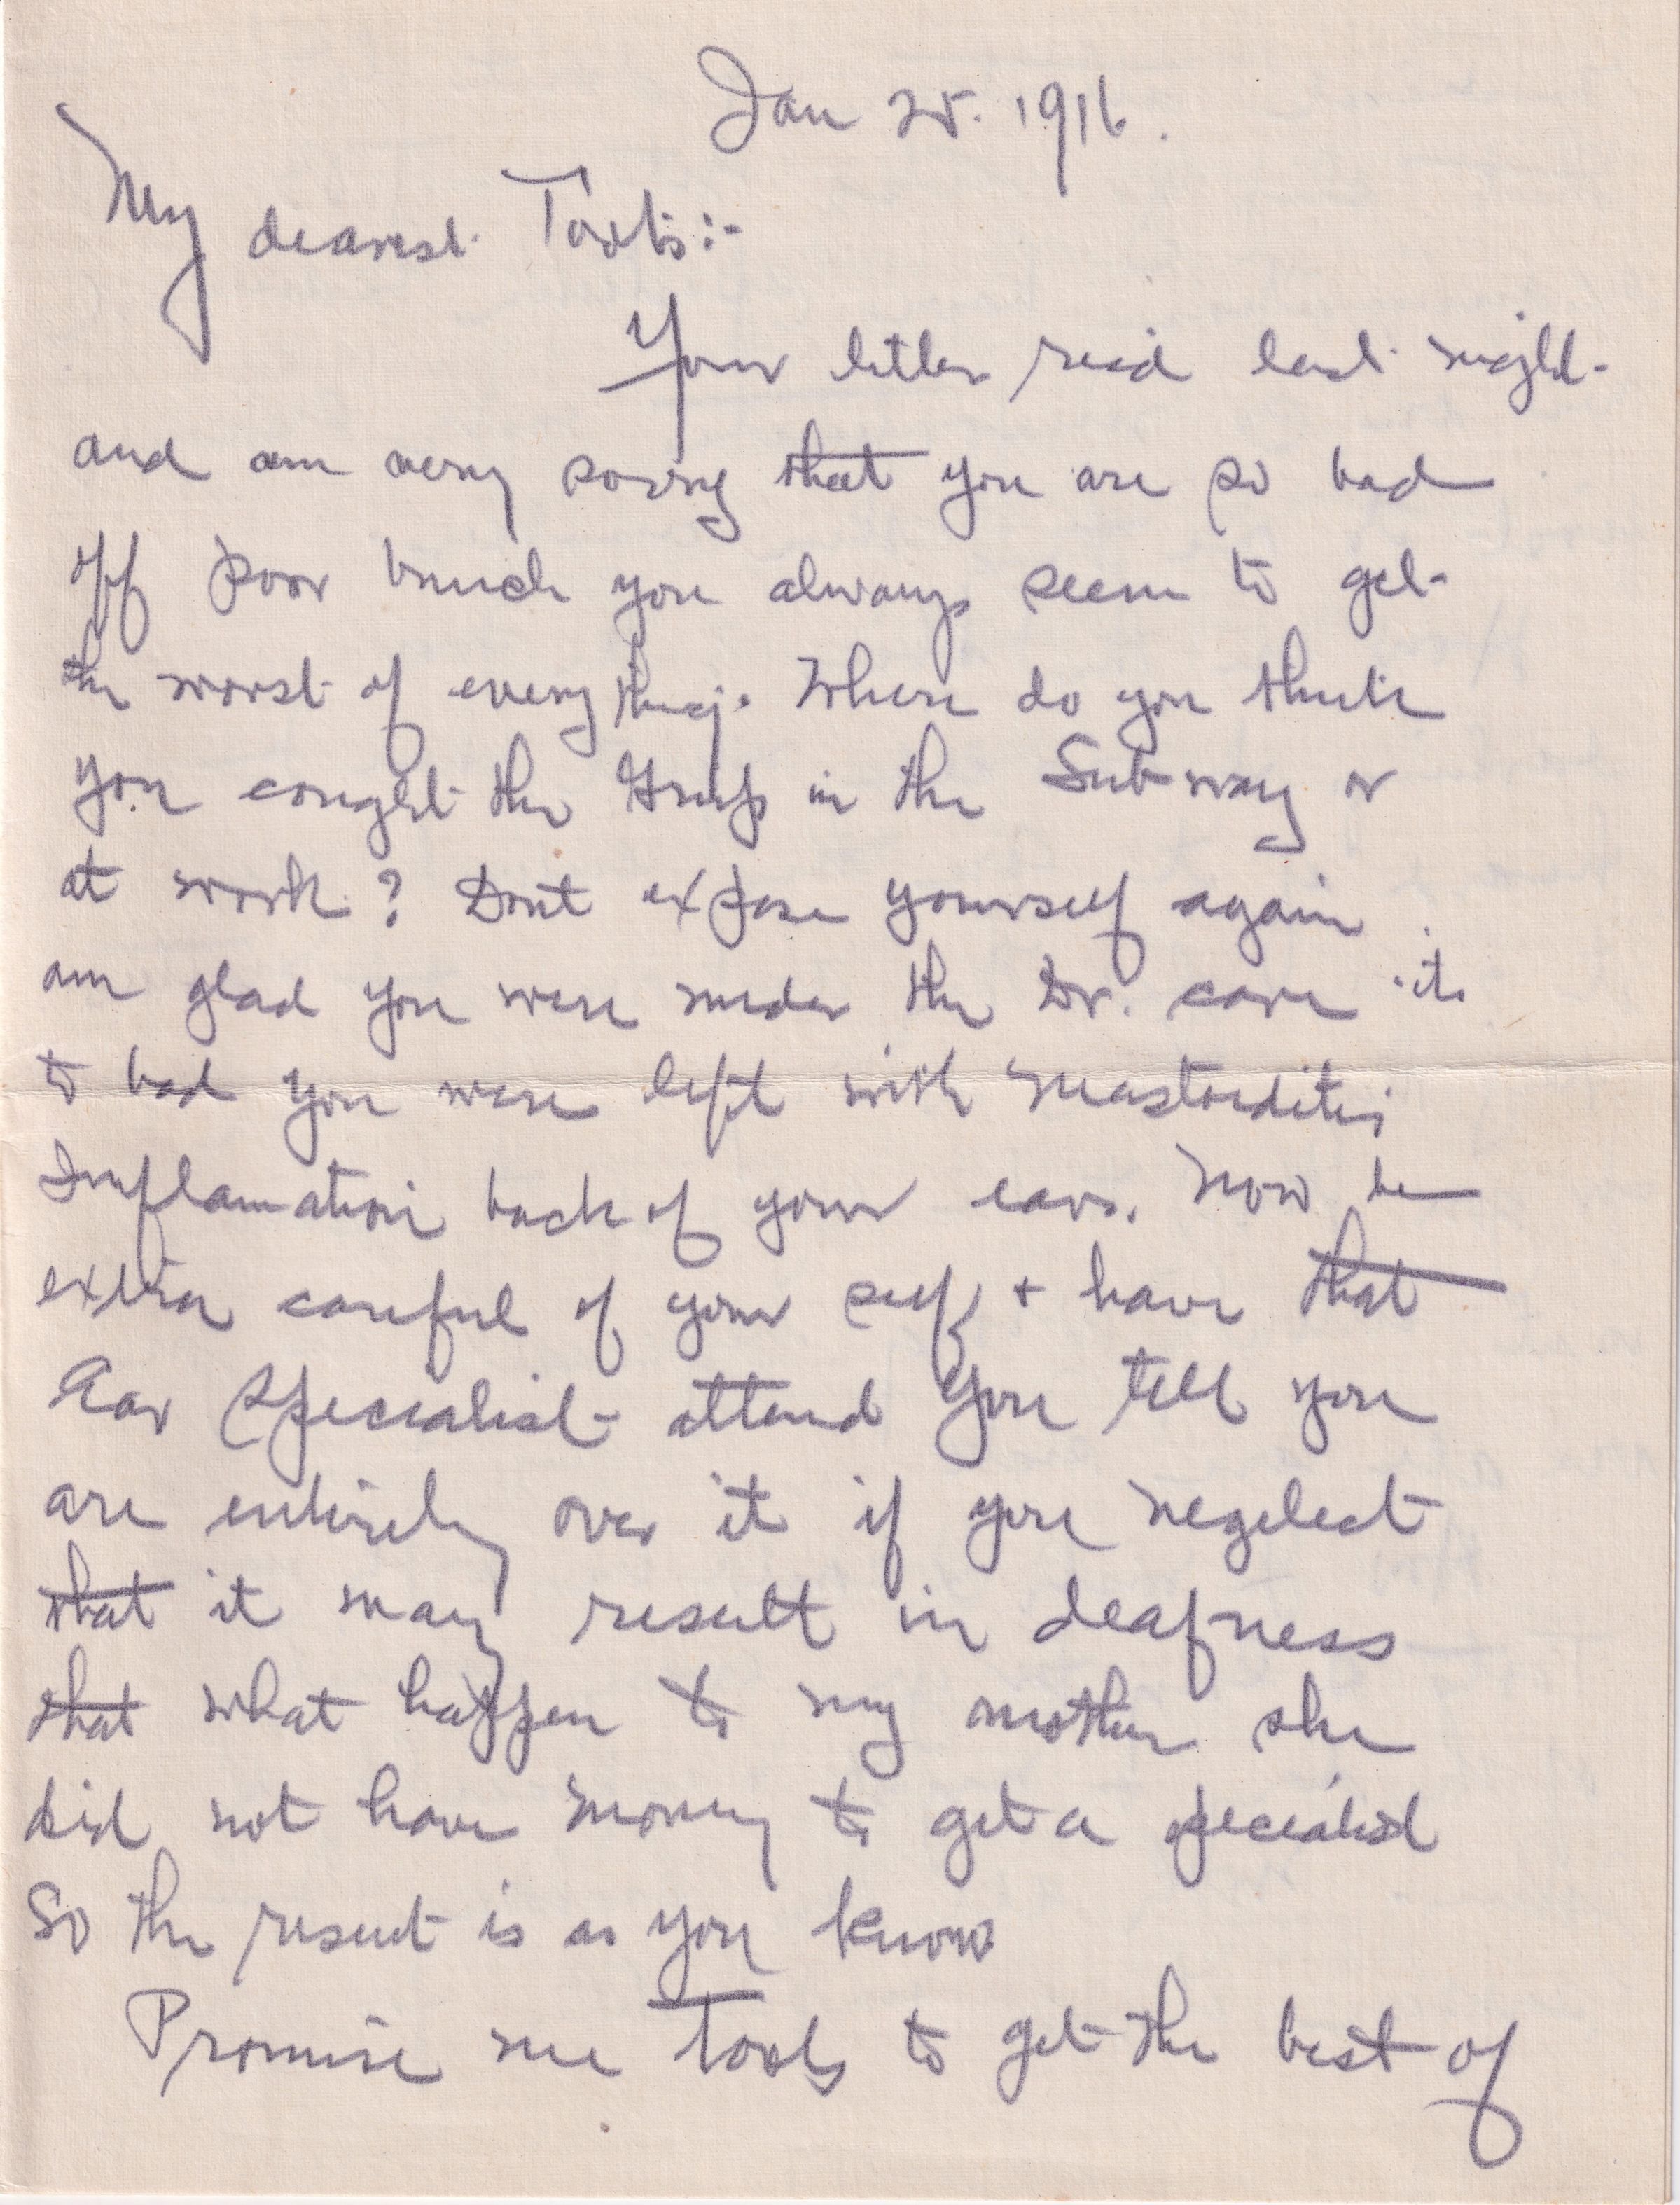 Jan 25. 1916.
My dearest Toots:-
Your letter recd last night
and am very sorry that you are so bad
off poor bunch you always seem to get
the worst of everything. Where do you think
you caught the Gripp in the Subway or
at work? Dont expose yourself again
am glad you were under the Dr. care its
to bad you were left with Mastoiditis
Inflamation back of your ears. Now be
extra careful of your self + have that
Ear Specialist attend you till you
are entirely over it if you neglect
that it may result in deafness
that what happen to my mother she
did not have money to get a specialist
So the result is as you know
Promise me Toots to get the best of